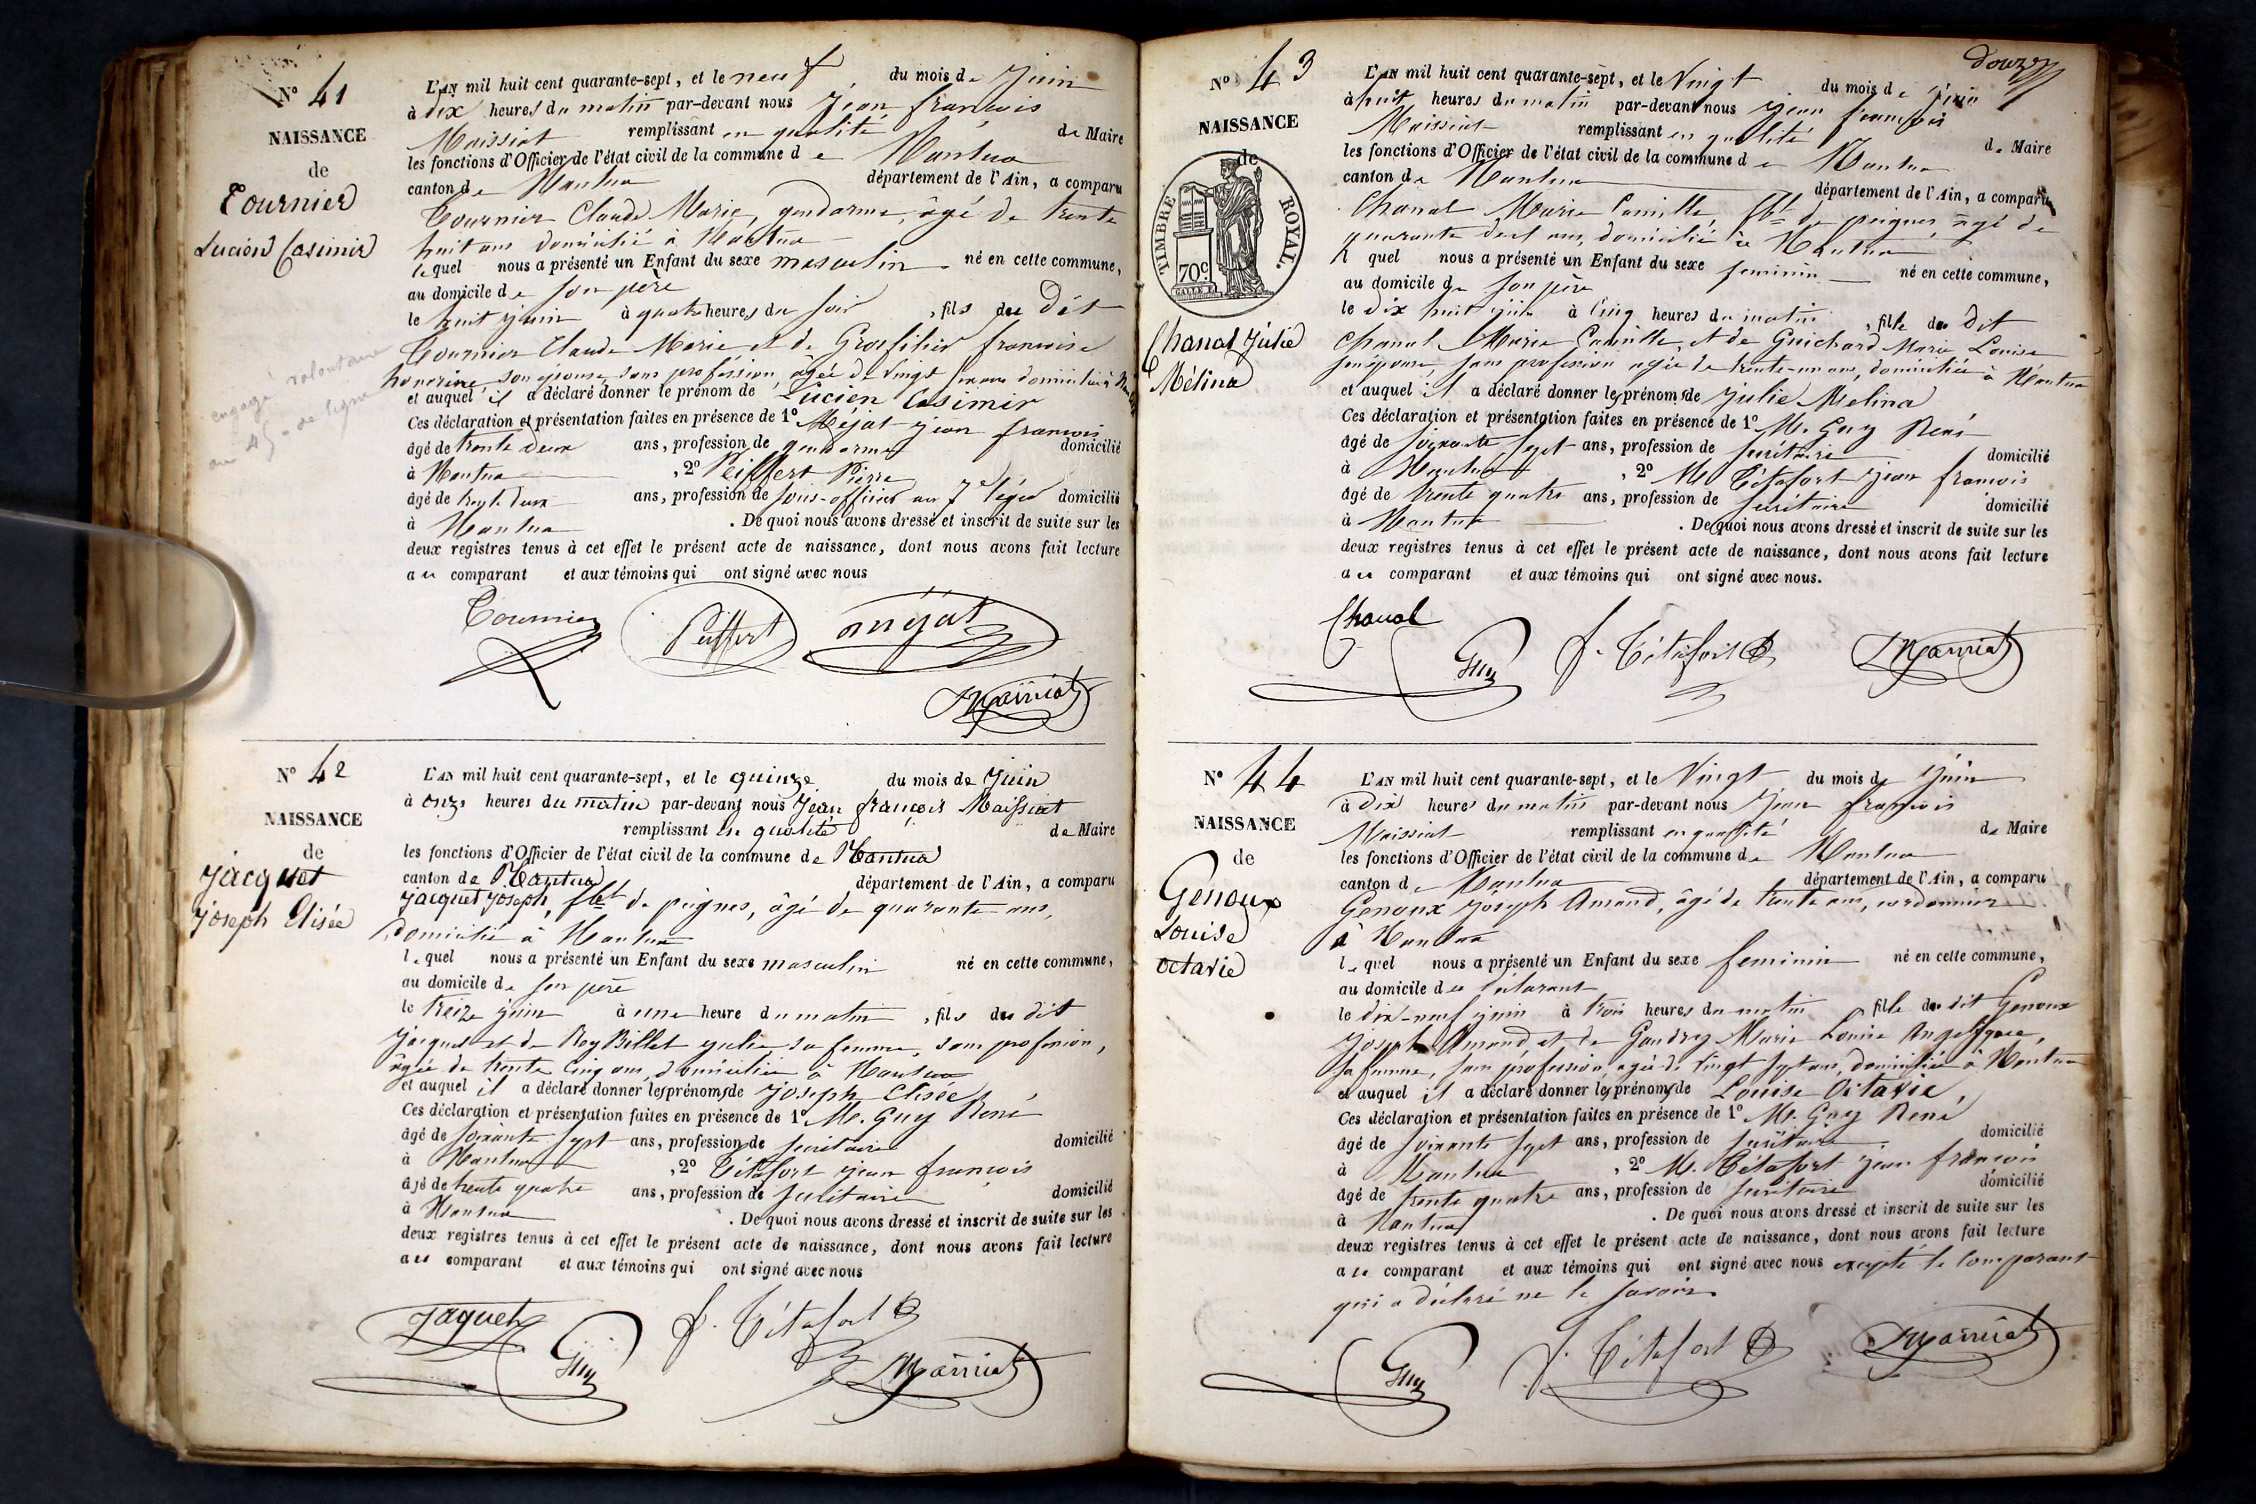 N° 41
NAISSANCE
de
Tournier
Lucien Casimir
engagé volontaire
au 45e de ligne
L'AN mil huit cent quarante-sept, et le neuf du mois de Juin
à dix heures du matin par-devant nous Jean françois
Maissiat remplissant en qualité de Maire
les fonctions d'Officier de l'état civil de la commune de Nantua
canton de Nantua département de l'Ain, a comparu
Tournier Claude Marie, gendarme, âgé de trente
huit ans domicilié à Nantua
lequel nous a présenté un Enfant du sexe masculin né en cette commune,
au domicile de son père
le huit juin à quatre heures du soir, fils du dit
Tournier Claude Marie et de Grosfilier francoise
honorine, son épouse, sans profession, âgée de vingt ans domiciliée à
et auquel il a déclaré donner le prénom de Lucien Casimir
Ces déclaration et présentation faites en présence de 1° Méjat jean francois
âgé de trente deux ans, profession de gendarme domicilié
à Nantua, 2° Peiffert Pierre
âgé de vingt deux ans, profession de sous-officier au 7e léger domicilié
à Nantua. De quoi nous avons dressé et inscrit de suite sur les
deux registres tenus à cet effet le présent acte de naissance, dont nous avons fait lecture
au comparant et aux témoins qui ont signé avec nous
Tournier Peiffert méjat
Maissiat
N° 42
NAISSANCE
de
Jacquet
Joseph Elisée
L'AN mil huit cent quarante-sept, et le quinze du mois de Juin
à onze heures du matin par-devant nous Jean françois Maissiat
remplissant en qualité de Maire
les fonctions d'Officier de l'état civil de la commune de Nantua
canton de Nantua département de l'Ain, a comparu
Jacquet Joseph, fbt de peignes, âgé de quarante ans,
domicilié à Nantua
lequel nous a présenté un Enfant du sexe masculin né en cette commune,
au domicile de son père
le treize juin à une heure du matin, fils du dit
Jacquet et de Rey Billet julie sa femme, sans profession,
âgée de trente cinq ans, domiciliée à Nantua
et auquel il a déclaré donner les prénoms de Joseph Elisée
Ces déclaration et présentation faites en présence de 1° M. Guy René
âgé de soixante sept ans, profession de secrétaire domicilié
à Nantua, 2° Tétafort jean francois
âgé de trente quatre ans, profession de secrétaire domicilié
à Nantua. De quoi nous avons dressé et inscrit de suite sur les
deux registres tenus à cet effet le présent acte de naissance, dont nous avons fait lecture
au comparant et aux témoins qui ont signé avec nous
Jaquet Guy f. Tétafort
Maissiat
douze
N° 43
NAISSANCE
de
TIMBRE ROYAL.
70c.
Chanal Julie
Mélina
L'AN mil huit cent quarante-sept, et le Vingt du mois de juin
à huit heures du matin par-devant nous jean françois
Maissiat remplissant en qualité de Maire
les fonctions d'Officier de l'état civil de la commune de Nantua
canton de Nantua département de l'Ain, a comparu
Chanal Marie Camille, fbt de peignes, âgé de
quarante sept ans, domicilié à Nantua
lequel nous a présenté un Enfant du sexe feminin né en cette commune,
au domicile de son père
le dix huit juin à cinq heures du matin, fille du dit
Chanal Marie Camille, et de Guichard Marie Louise
son épouse, sans profession agée de trente-un ans, domiciliée à Nantua
et auquel il a déclaré donner les prénoms de Julie Melina
Ces déclaration et présentation faites en présence de 1° M. Guy René
âgé de soixante sept ans, profession de secrétaire domicilié
à Nantua, 2° M. Tétafort jean francois
âgé de trente quatre ans, profession de secrétaire domicilié
à Nantua. De quoi nous avons dressé et inscrit de suite sur les
deux registres tenus à cet effet le présent acte de naissance, dont nous avons fait lecture
au comparant et aux témoins qui ont signé avec nous.
Chanal Guy f. Tétafort Maissiat
N° 44
NAISSANCE
de
Genoux
Louise
octavie
L'AN mil huit cent quarante-sept, et le Vingt du mois de juin
à dix heures du matin par-devant nous Jean françois
Maissiat remplissant en qualité de Maire
les fonctions d'Officier de l'état civil de la commune de Nantua
canton de Nantua département de l'Ain, a comparu
Genoux Joseph Amand, âgé de trente ans, cordonnier
à Nantua
lequel nous a présenté un Enfant du sexe feminin né en cette commune,
au domicile du déclarant
le dix-neuf juin à trois heures du matin, fille du dit Genoux
Joseph Amand, et de Gaudrey Marie Louise Angélique,
sa femme, sans profession, agée de vingt sept ans, domiciliée à Nantua
et auquel il a déclaré donner les prénoms de Louise Octavie,
Ces déclaration et présentation faites en présence de 1° M. Guy René
âgé de soixante sept ans, profession de secrétaire domicilié
à Nantua, 2° M. Tétafort jean francois
âgé de trente quatre ans, profession de secrétaire domicilié
à Nantua. De quoi nous avons dressé et inscrit de suite sur les
deux registres tenus à cet effet le présent acte de naissance, dont nous avons fait lecture
au comparant et aux témoins qui ont signé avec nous excepté le comparant
qui a déclaré ne le savoir.
Guy f. Tétafort Maissiat